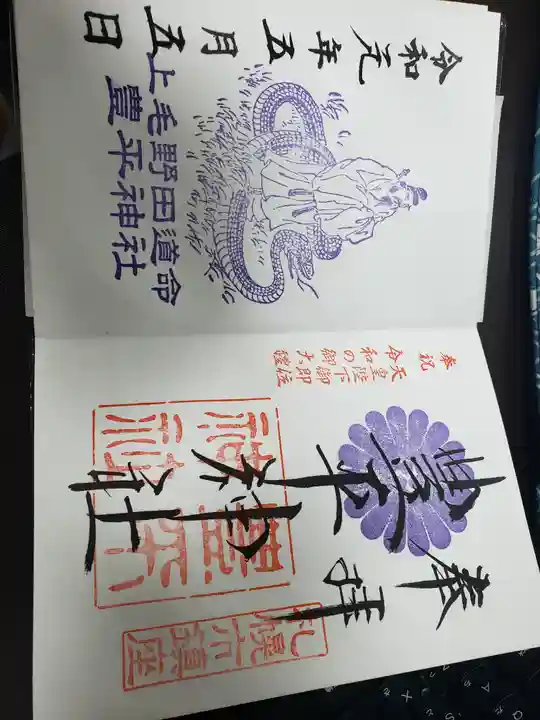 奉拝
豊平神社
豊平神社
札幌市鎮座
奉祝
天皇陛下御即位
令和の御大禮
上毛野田道命
豊平神社
令和元年五月五日